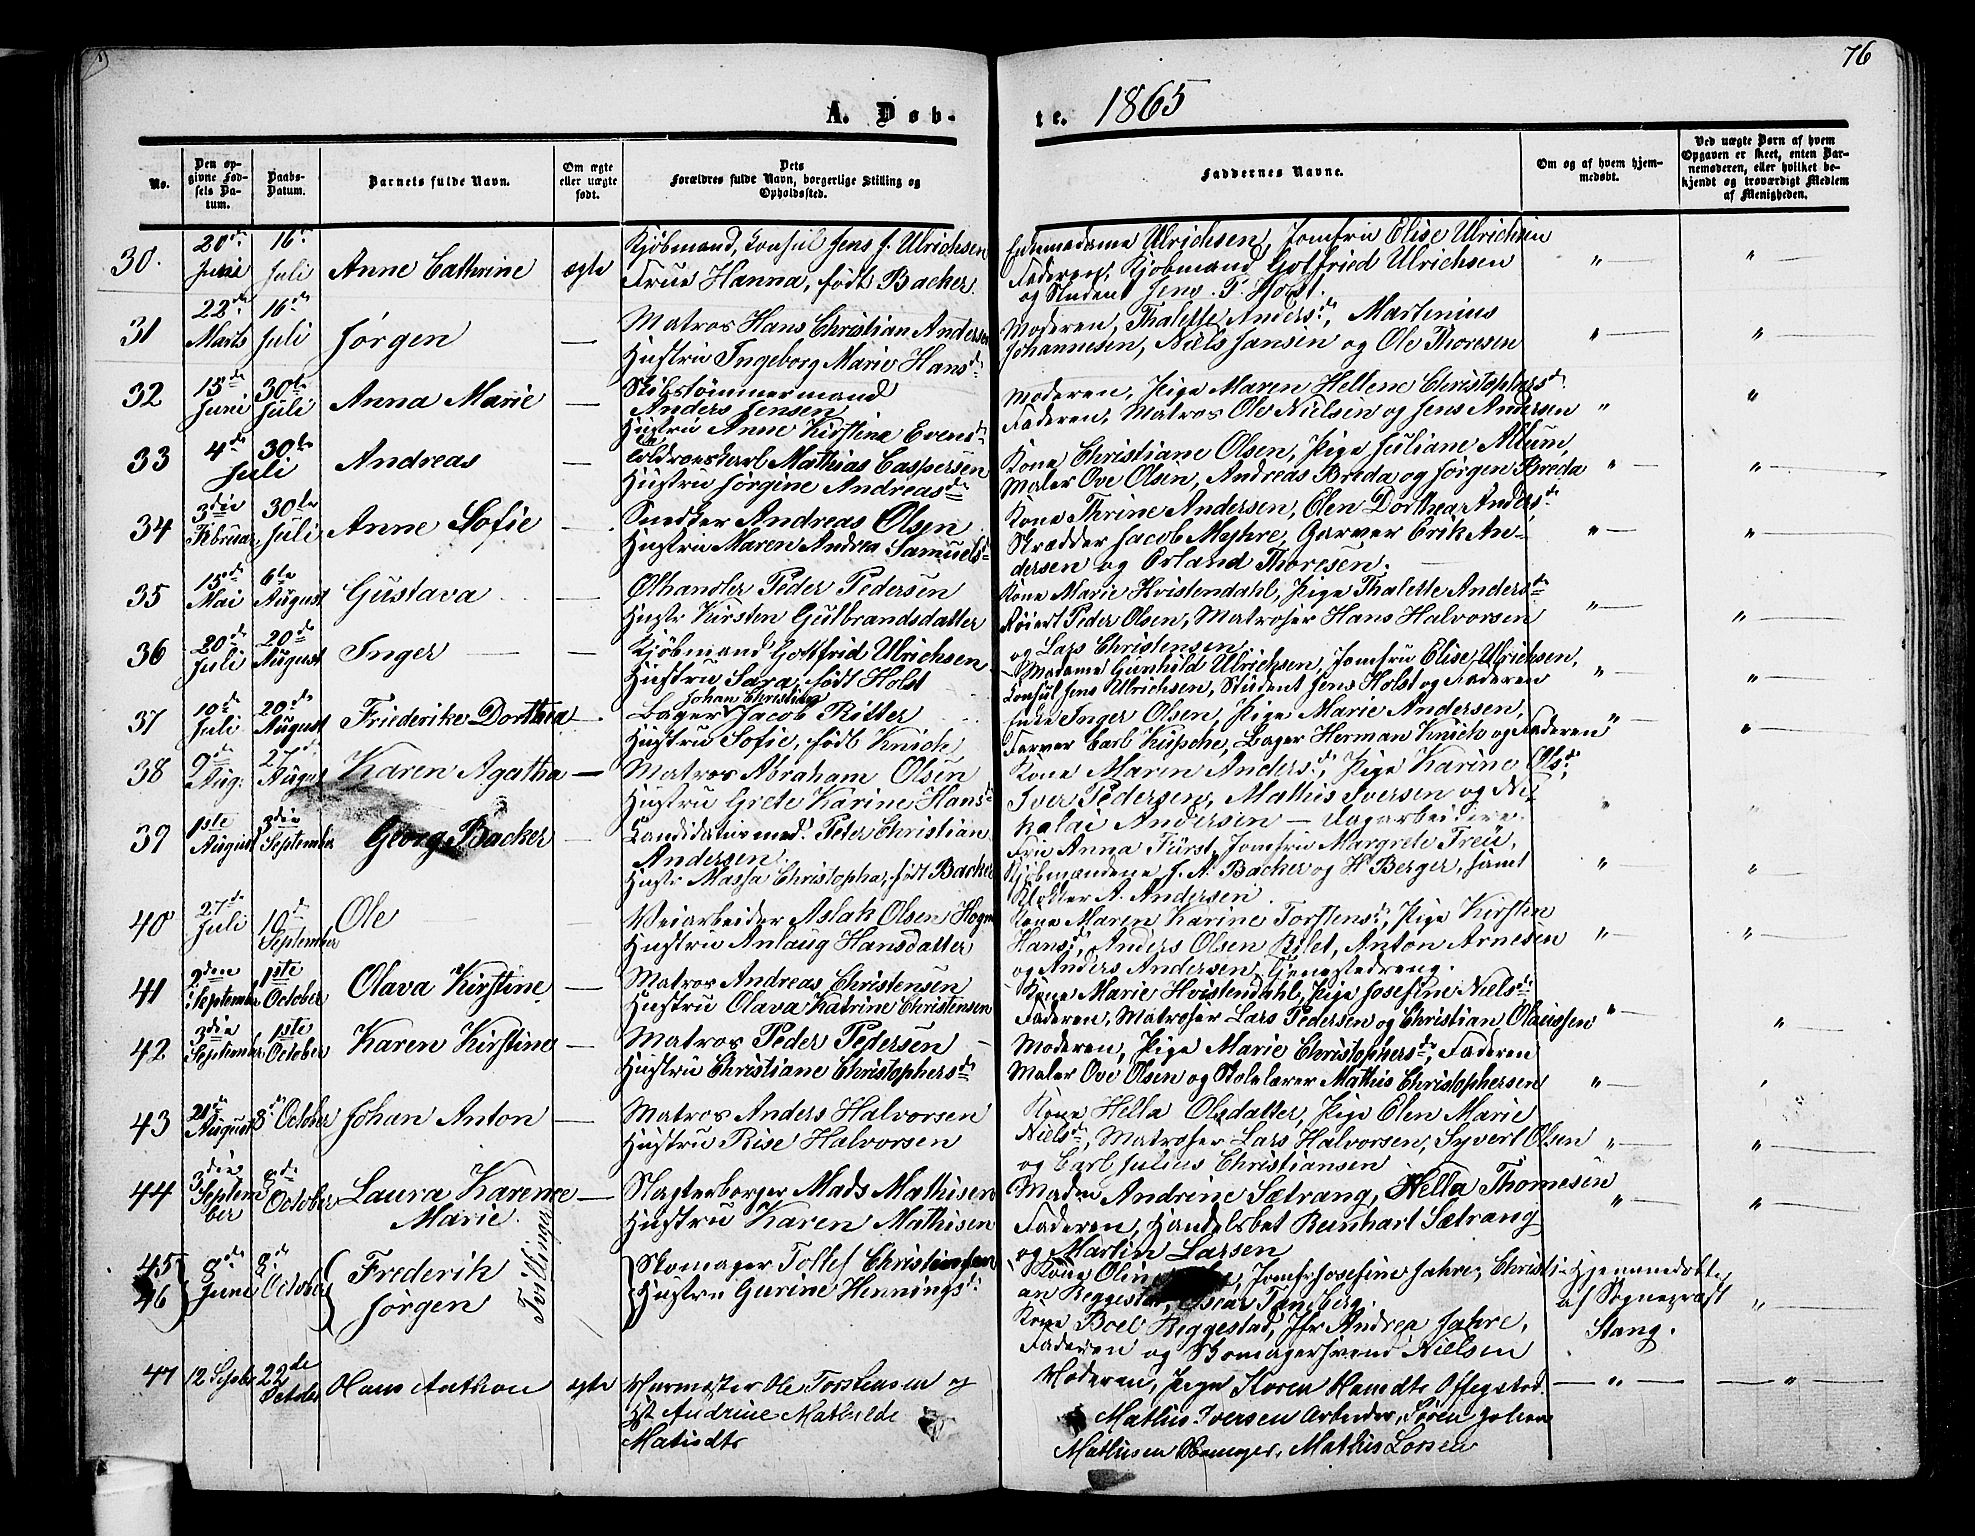 76
A. Døb-
te. 1865
No.
Den op-
givne Fød-
sels Da-
tum.
Daabs-
Datum.
Barnets fulde Navn.
Om ægte
eller uægte
født.
Dets
Forældres fulde Navn, borgerlige Stilling og
Opholdssted.
Faddernes Navne.
Om og af hvem hjem-
medøbt.
Ved uægte Børn af hvem
Opgaven er skeet, enten Bar-
nemoderen, eller hvilket be-
kjendt og troværdigt Medlem
af Menigheden.
30. 20de Juni 16de Juli Anne Cathrine ægte
Kjøbmand, Konsul Jens J. Ulrichsen
Frue Hanna, født Backer
Enkemadame Ulrichsen, Jomfru Elise Ulrichsen
Faderen, Kjøbmand Gotfried Ulrichsen
og Student Jens P. Holst.
31 22de Marts 16de Juli Jørgen —
Matros Hans Christian Andersen
Hustru Ingeborg Marie Hansd.
Moderen, Thalette Andersd., Martinius
Johannesen, Niels Jansen og Ole Thoresen
32 15de Juni 30te Juli Anna Marie —
Skibstømmermand
Anders Jensen
Hustru Anne Kirstine Evensd.
Moderen, Pige Maren Hellene Christophersd.
Faderen, Matros Ole Nielsen og Jens Andersen
33 4de 30te Juli Andreas —
Mathias Caspersen
Hustru Jørgine Andreasd.
Kone Christiane Olsen, Pige Juliane Allum,
Maler Ove Olsen, Andreas Breda og Jørgen Breda
34 3die Februar 30te Juli Anne Sofie —
Snedker Andreas Olsen
Hustru Maren Andrea Samuelsd.
Kone Thrine Andersen, Elen Dorthea Andersd.
Skrædder Jacob Myhre, Garver Erik An-
dersen og Erland Thoresen.
35 15de Mai 6te August Gustava —
Ølhandler Peder Pedersen
Hustr Kirsten Gulbrandsdatter
Kone Marie Hvistendahl, Pige Thalette Andersd.
Peder Olsen, Matroser Hans Halvorsen
og Lars Christensen
36 20de Juli 20de August Inger —
Kjøbmand Gottfrid Ulrichsen
Hustru Sara, født Holst
Madame Gunhild Ulrichsen, Jomfru Elise Ulrichsen,
Konsul Jens Ulrichsen, Student Jens Holst og Faderen
37 10de Juli 20de August Friederike Dorthea —
Johan Christian
Bager Jacob Ritter
Hustru Sofie, født Knich
Enke Inger Olsen, Pige Marie Andersen,
Farver Carl Küpche, Bager Herman Knich og Faderen
38 9de Aug. 27de August Karen Agatha —
Matros Abraham Olsen
Hustru Grete Karine Hansd.
Kone Maren Andersd., Pige Karine Olsd.
Iver Pedersen, Mathis Iversen og Ni-
kolai Andersen —
39 1ste August 3die September Georg Backer
Kandidat med. Peter Christian
Andersen.
Hustr Massa Christopha, født Backer
Fru Anna Fürst, Jomfru Margrete Treu,
Kjøbmændene J. A. Backer og H Berger, samt
A. Andersen
40 27de Juli 10de September Ole —
Veiarbeider Aslak Olsen
Hustru Anlaug Hansdatter
Kone Maren Karine Torstensd., Pige Kirsten
Hansd., Anders Olsen, Anton Arnesen
og Anders Andersen, Tjenestedreng.
41 2den September 1ste October Olava Kirstine —
Matros Andreas Christensen
Hustru Olava Katrine Christensen
Kone Marie Hvistendahl, Pige Josefine Nielsd.
Faderen, Matroser Lars Pedersen og Christian Olaussen
42 3die September 1ste October Karen Kirstine —
Matros Peder Pedersen
Hustru Christiane Christophersd.
Moderen, Pige Marie Christophersd., Faderen
Maler Ove Olsen og Skolelærer Mathis Christophersen
43 21de August 8de October Johan Anton —
Matros Anders Halvorsen
Hustru Rise Halvorsen
Kone Hella Olsdatter, Pige Elen Marie
Nielsd., Matroser Lars Halvorsen, Syvert Olsen
og Carl Julius Christiansen
44 3die Septem-
ber 8de October Laura Karence —
Marie.
Slagterborger Mads Mathisen
Hustru Karen Mathisen
Madm Andrine Sætrang, Hella Thomesen
Faderen, Handelsbet Reinhart Sætrang
og Martin Larsen
45
46 8de Juni 8de October Frederik
Jørgen
Tvillinger
Skomager Tollef Christiansen
Hustru Gurine Henningsd.
Kone Olin, Jomfr Josefine Jahre, Christi-
an Reggestad, Tandberg.
Kone Boel Reggestad, Jfr Andrea Jahre,
Faderen og Skomagersvend Nielsen
Hjemmedøbte
af Sogneprest
Stang.
47 12 Septbr 22de October Hans Anthon ægte
Murmester Ole Torstensen og
Hst Andrine Mathilde
Matisdtr
Moderen, Pige Karen Hansdtr
Mathis Iversen Arbeider, Søren Johan
Mathisen, Mathis Larsen